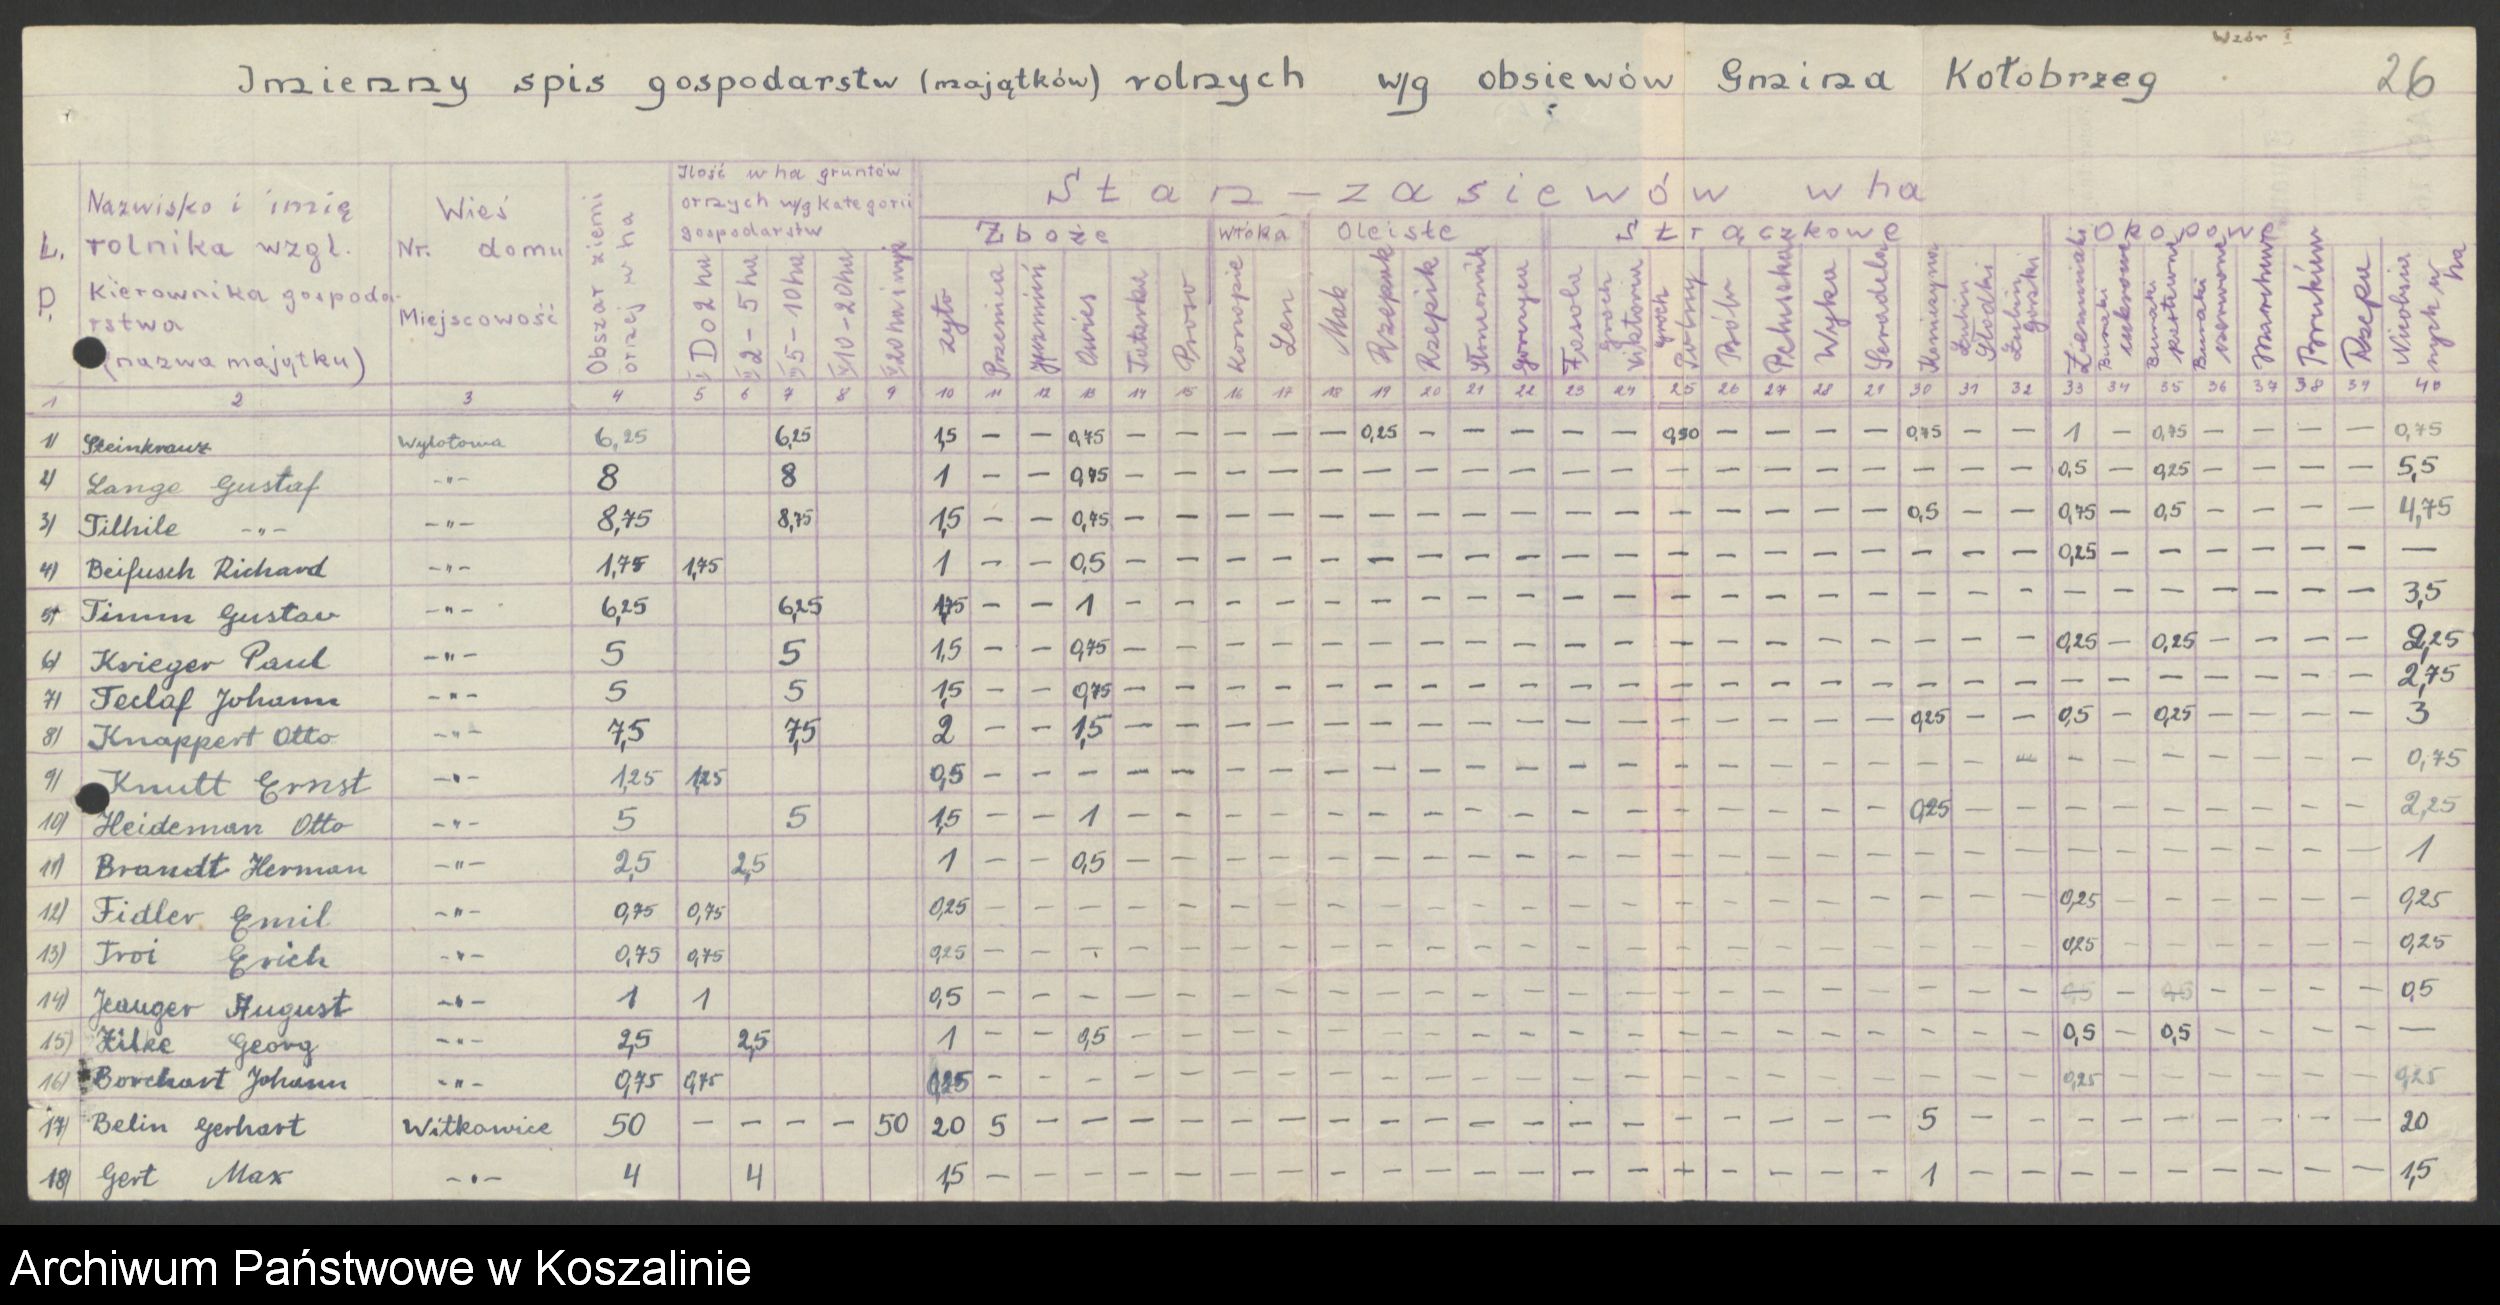 Wzór I
Imienny spis gospodarstw (majątków) rolnych w/g obsiewów Gmina Kołobrzeg 26
L. P. Nazwisko i imię rolnika wzgl. Kierownika gospodarstwa (nazwa majątku)
Wieś Nr. domu Miejscowość
Obszar ziemi ornej w ha
Ilość w ha gruntów ornych w/g kategorii gospodarstw
I Do 2 ha II 2-5 ha III 5-10 ha IV 10-20 ha V 20 ha i wyż
Stan - zasiewów w ha
Zboże Włókna Oleiste Strączkowe Okopowe
żyto Pszenica Jęczmień Owies Tatarka Proso Konopie Len Mak Rzepak Rzepik Słonecznik Gorczyca Fasola Groch viktoria Groch polny Bób Peluszka Wyka Seradela Koniczyna Łubin Słodki Łubin Gorzki Ziemniaki Buraki cukrowe Buraki pastewne Buraki czerwone Marchew Brukiew Rzepa Nieobsianych w ha
1 2 3 4 5 6 7 8 9 10 11 12 13 14 15 16 17 18 19 20 21 22 23 24 25 26 27 28 29 30 31 32 33 34 35 36 37 38 39 40
1) Steinkrauz Wylotowa 6,25 6,25 1,5 — — 0,75 — — — — — 0,25 — — — — — 0,50 — — — — 0,75 — — 1 — 0,75 — — — — 0,75
2) Lange Gustaf -"- 8 8 1 — — 0,75 — — — — — — — — — — — — — — — — — — — 0,5 — 0,25 — — — — 5,5
3) Tilhile -"- -"- 8,75 8,75 1,5 — — 0,75 — — — — — — — — — — — — — — — — 0,5 — — 0,75 — 0,5 — — — — 4,75
4) Beifusch Richard -"- 1,75 1,75 1 — — 0,5 — — — — — — — — — — — — — — — — — — — 0,25 — — — — — — —
5) Timm Gustav -"- 6,25 6,25 1,75 — — 1 — — — — — — — — — — — — — — — — — — — — — — — — — — 3,5
6) Krieger Paul -"- 5 5 1,5 — — 0,75 — — — — — — — — — — — — — — — — — — — 0,25 — 0,25 — — — — 2,25
7) Teclaf Johann -"- 5 5 1,5 — — 0,75 — — — — — — — — — — — — — — — — — — — — — — — — — — 2,75
8) Knappert Otto -"- 7,5 7,5 2 — — 1,5 — — — — — — — — — — — — — — — — 0,25 — — 0,5 — 0,25 — — — — 3
9) Knutt Ernst -"- 1,25 1,25 0,5 — — — — — — — — — — — — — — — — — — — — — — — — — — — — — 0,75
10) Heideman Otto -"- 5 5 1,5 — — 1 — — — — — — — — — — — — — — — — 0,25 — — — — — — — — — 2,25
11) Brandt Herman -"- 2,5 2,5 1 — — 0,5 — — — — — — — — — — — — — — — — — — — — — — — — — — 1
12) Fidler Emil -"- 0,75 0,75 0,25 — — — — — — — — — — — — — — — — — — — — — — 0,25 — — — — — — 0,25
13) Troi Erich -"- 0,75 0,75 0,25 — — — — — — — — — — — — — — — — — — — — — — 0,25 — — — — — — 0,25
14) Jeauger August -"- 1 1 0,5 — — — — — — — — — — — — — — — — — — — — — — 0,5 — 0,5 — — — — 0,5
15) Hilke Georg -"- 2,5 2,5 1 — — 0,5 — — — — — — — — — — — — — — — — — — — 0,5 — 0,5 — — — — —
16) Borchart Johann -"- 0,75 0,75 0,25 — — — — — — — — — — — — — — — — — — — — — — 0,25 — — — — — — 0,25
17) Belin Gerhart Witkowice 50 — — — — 50 20 5 — — — — — — — — — — — — — — — — — — 5 — — — — — — — — — 20
18) Gert Max -"- 4 4 1,5 — — — — — — — — — — — — — — — — — — — 1 — — — — — — — — — 1,5
Archiwum Państwowe w Koszalinie